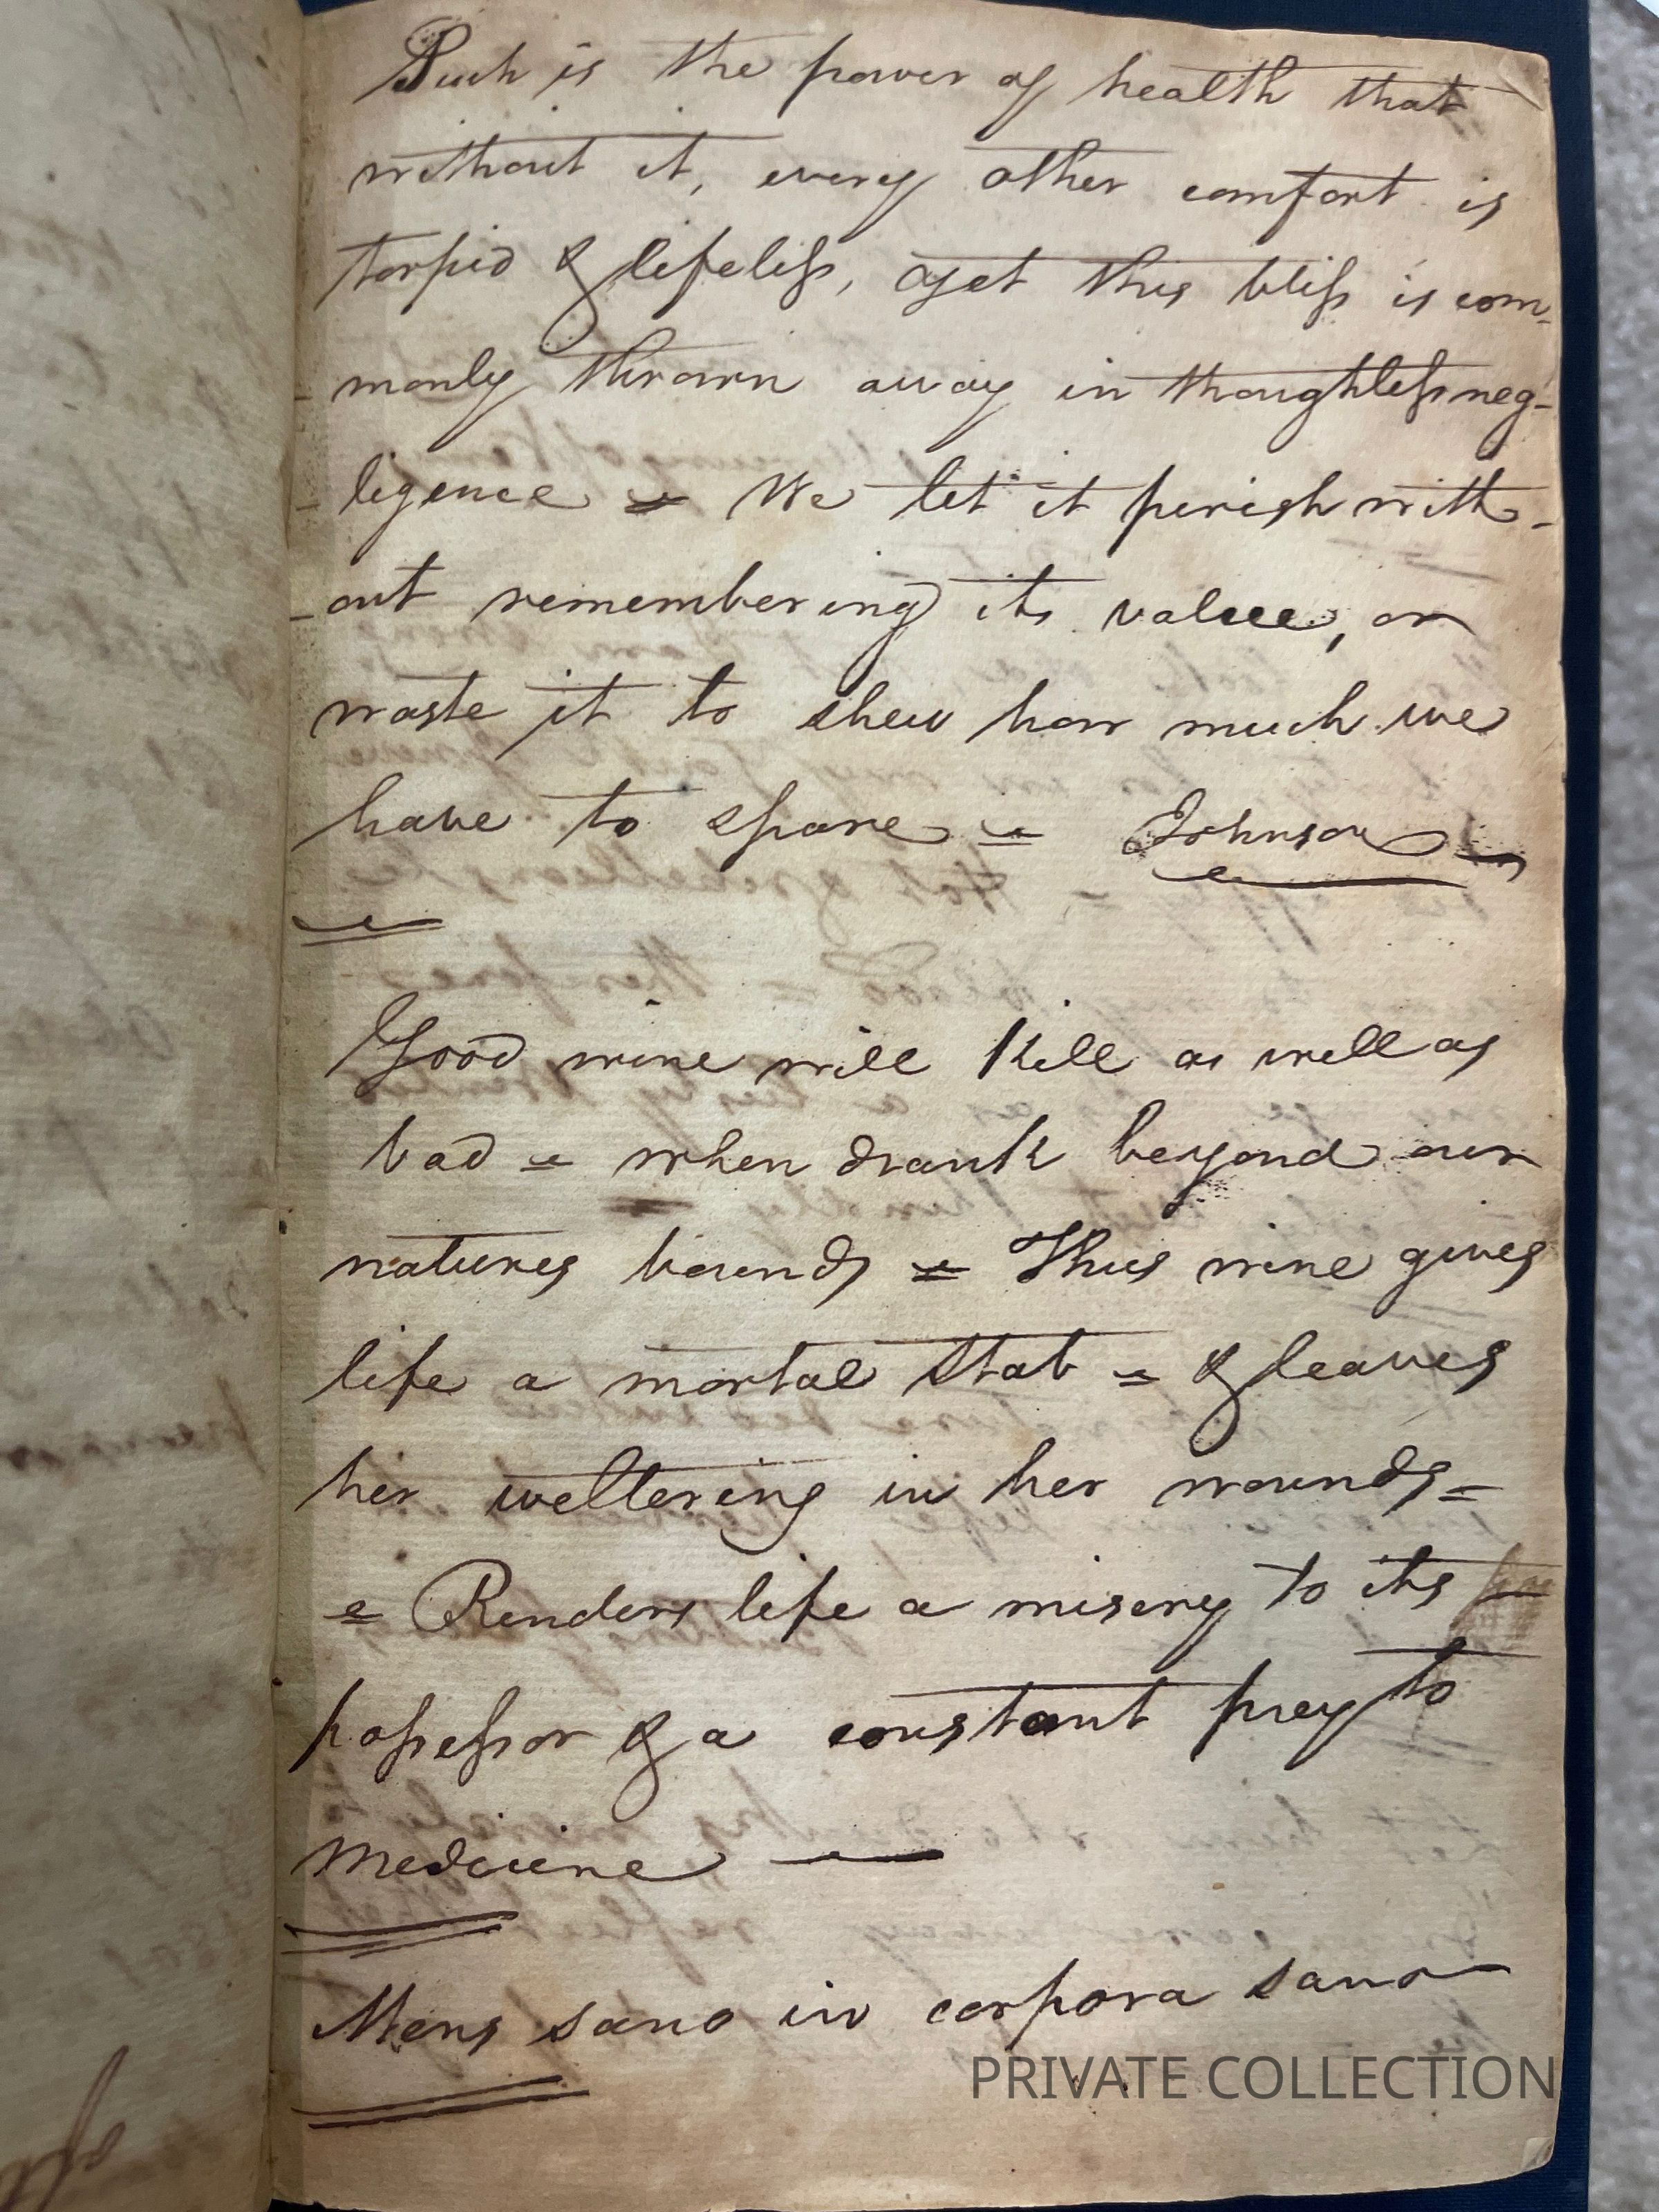 Such is the power of health that
without it, every other comfort is
torpid & lifeless, yet this bliss is com-
-monly thrown away in thoughtless neg-
-ligence = We let it perish with-
-out remembering its value, or
waste it to shew how much we
have to spare = Johnson
Good wine will kill as well as
bad = when drank beyond our
natures bounds = Thus wine gives
life a mortal stab = & leaves
her weltering in her wounds =
= Renders life a misery to its
possessor & a constant prey to
medicine —
Mens sano in corpora sano
PRIVATE COLLECTION